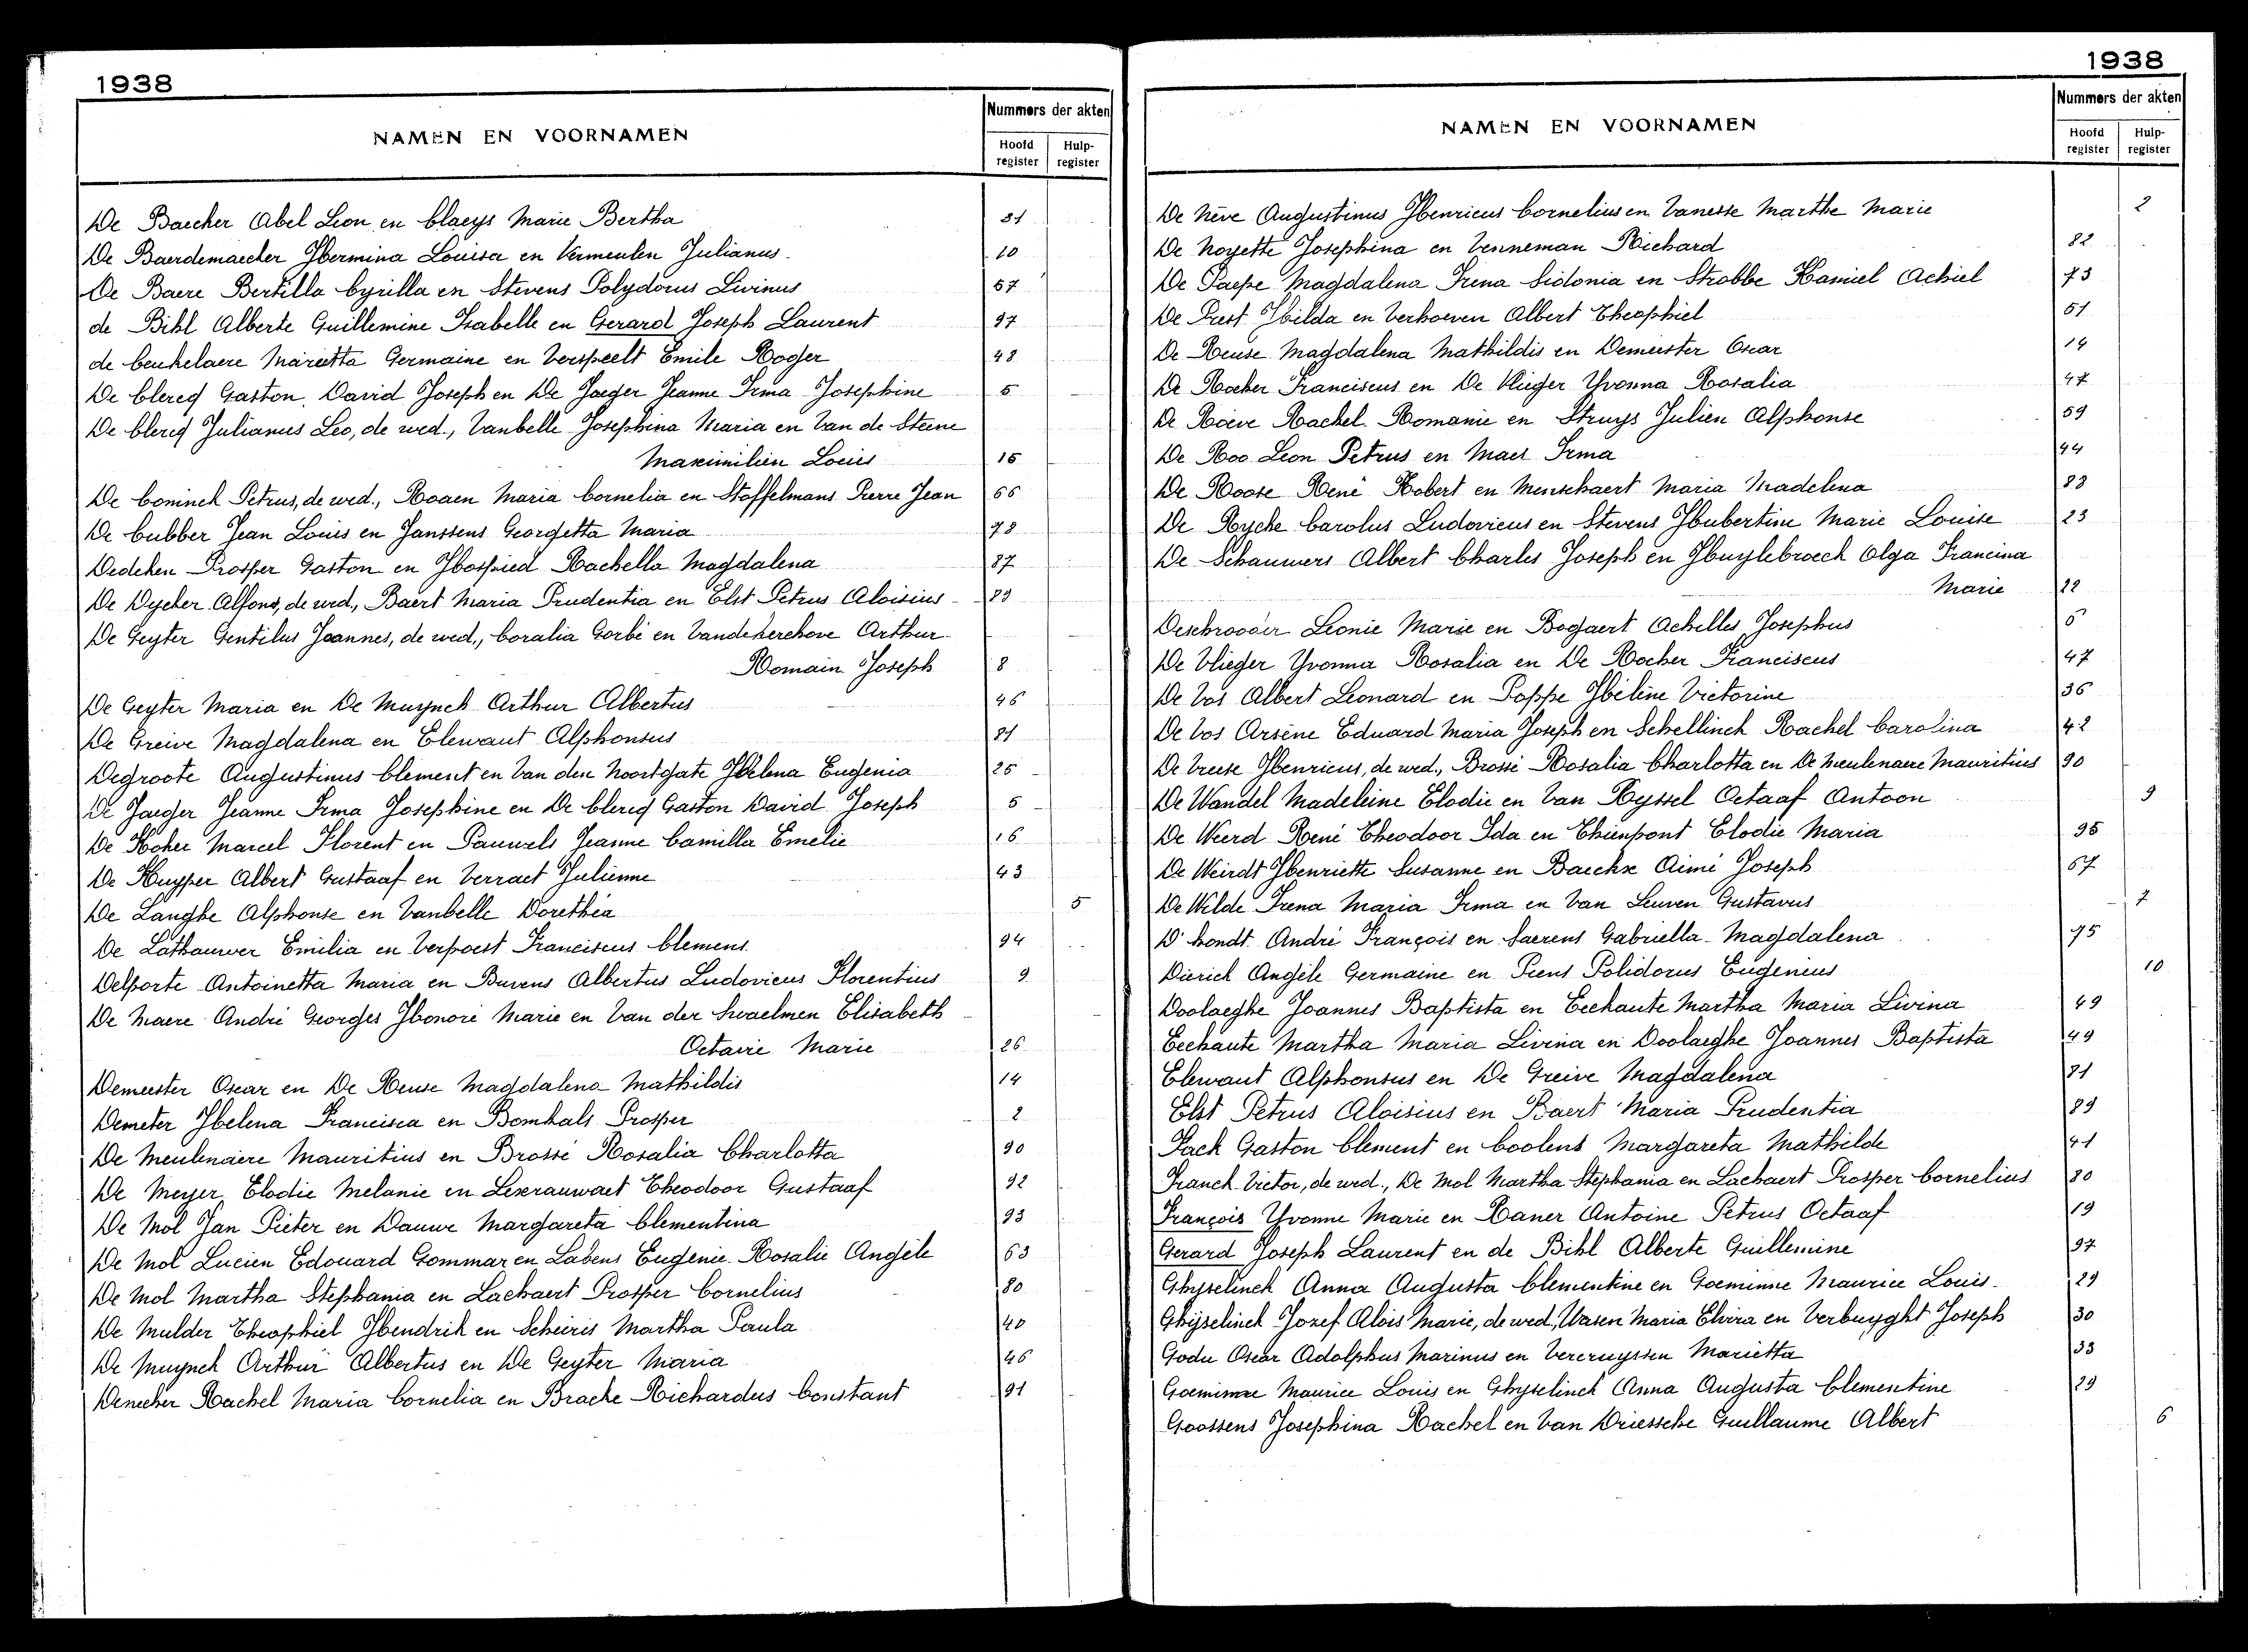 1938
NAMEN EN VOORNAMEN
Nummers der akten
Hoofd register
Hulp- register
De Baecker Abel Leon en Claeys Marie Bertha 31
De Baerdemaecker Hermina Louisa en Vermeulen Julianus 10
De Baere Bertilla Cyrilla en Stevens Polydorus Livinus 57
de Bihl Alberte Guillemine Isabelle en Gerard Joseph Laurent 97
de Ceukelaere Marietta Germaine en Verspeelt Emile Roger 48
De Clercq Gaston David Joseph en De Jaeger Jeanne Irma Josephine 5
De Clercq Julianus Leo, de wed., Vanbelle Josephina Maria en Van de Steene
Maximilien Louis 15
De Coninck Petrus, de wed., Roaen Maria Cornelia en Stoffelmans Pierre Jean 66
De Cubber Jean Louis en Janssens Georgetta Maria 78
Dedeken Prosper Gaston en Hospied Rachella Magdalena 87
De Dycker Alfons, de wed., Baert Maria Prudentia en Elst Petrus Aloisius 89
De Geyter Gentilus Joannes, de wed., Coralia Gorbé en Vandekerchove Arthur
Romain Joseph 8
De Geyter Maria en De Muynck Arthur Albertus 46
De Greive Magdalena en Elewaut Alphonsus 81
Degroote Augustinus Clement en Van den Noortgate Helena Eugenia 25
De Jaeger Jeanne Irma Josephine en De Clercq Gaston David Joseph 5
De Koker Marcel Florent en Pauwels Jeanne Camilla Emelie 16
De Kuyper Albert Gustaaf en Verraet Julienne 43
De Langhe Alphonse en Vanbelle Dorethea 5
De Lathauwer Emilia en Verpoest Franciscus Clemens 94
Delporte Antoinetta Maria en Buvens Albertus Ludovicus Florentius 9
De Maere André Georges Honoré Marie en Van der Swaelmen Elisabeth
Octavie Marie 26
Demeester Oscar en De Reuse Magdalena Mathildis 14
Demeter Helena Francisca en Bomhals Prosper 2
De Meulenaere Mauritius en Brossé Rosalia Charlotta 90
De Meyer Elodie Melanie en Lexerauwaet Theodoor Gustaaf 92
De Mol Jan Pieter en Dauwe Margareta Clementina 93
De Mol Lucien Edouard Gommar en Labens Eugenie Rosalie Angèle 63
De Mol Martha Stephania en Lachaert Prosper Cornelius 80
De Mulder Theophiel Hendrik en Scheiris Martha Paula 40
De Muynck Arthur Albertus en De Geyter Maria 46
Denecker Rachel Maria Cornelia en Bracke Richardus Constant 91
1938
NAMEN EN VOORNAMEN
Nummers der akten
Hoofd register
Hulp- register
De Nève Augustinus Henricus Cornelius en Vanesse Marthe Marie 2
De Noyette Josephina en Venneman Richard 82
De Paepe Magdalena Irena Sidonia en Strobbe Kamiel Achiel 73
De Prest Hilda en Verhoeven Albert Theophiel 51
De Reuse Magdalena Mathildis en Demeester Oscar 14
De Rocker Franciscus en De Vlieger Yvonna Rosalia 47
De Roeve Rachel Romanie en Struys Julien Alphonse 59
De Roo Leon Petrus en Maes Irma 44
De Roose René Robert en Menschaert Maria Madelena 83
De Rycke Carolus Ludovicus en Stevens Hubertine Marie Louise 23
De Schauwers Albert Charles Joseph en Huylebroeck Olga Francina
Marie 22
Deschrooder Leonie Marie en Bogaert Achilles Josephus 6
De Vlieger Yvonna Rosalia en De Rocker Franciscus 47
De Vos Albert Leonard en Poppe Héléne Victorine 36
De Vos Arsène Eduard Maria Joseph en Schellinck Rachel Carolina 42
De Vreese Henricus, de wed., Brossé Rosalia Charlotta en De Meulenaere Mauritius 90
De Wandel Madeleine Elodie en Van Ryssel Octaaf Antoon 9
De Weerd René Theodoor Ida en Thienpont Elodie Maria 95
De Weirdt Henriette Susanne en Baecke Aimé Joseph 67
De Wilde Irena Maria Irma en Van Leuven Gustavus 7
D'hondt André François en Saerens Gabriella Magdalena 75
Dierick Angèle Germaine en Piens Polidorus Eugenius 10
Doolaeghe Joannes Baptista en Eechaute Martha Maria Livina 49
Eechaute Martha Maria Livina en Doolaeghe Joannes Baptista 49
Elewaut Alphonsus en De Greive Magdalena 81
Elst Petrus Aloisius en Baert Maria Prudentia 89
Fack Gaston Clement en Coolens Margareta Mathilde 41
Franck Victor, de wed., De Mol Martha Stephania en Lachaert Prosper Cornelius 80
François Yvonne Marie en Daner Antoine Petrus Octaaf 19
Gerard Joseph Laurent en de Bihl Alberte Guillemine 97
Ghyselinck Anna Augusta Clementine en Goeminne Maurice Louis 29
Ghijselinck Jozef Alois Marie, de wed, Wasen Maria Elvira en Verbuyght Joseph 30
Godu Oscar Adolphus Marinus en Vercruyssen Marietta 33
Goeminne Maurice Louis en Ghyselinck Anna Augusta Clementine 29
Goossens Josephina Rachel en Van Driessche Guillaume Albert 6